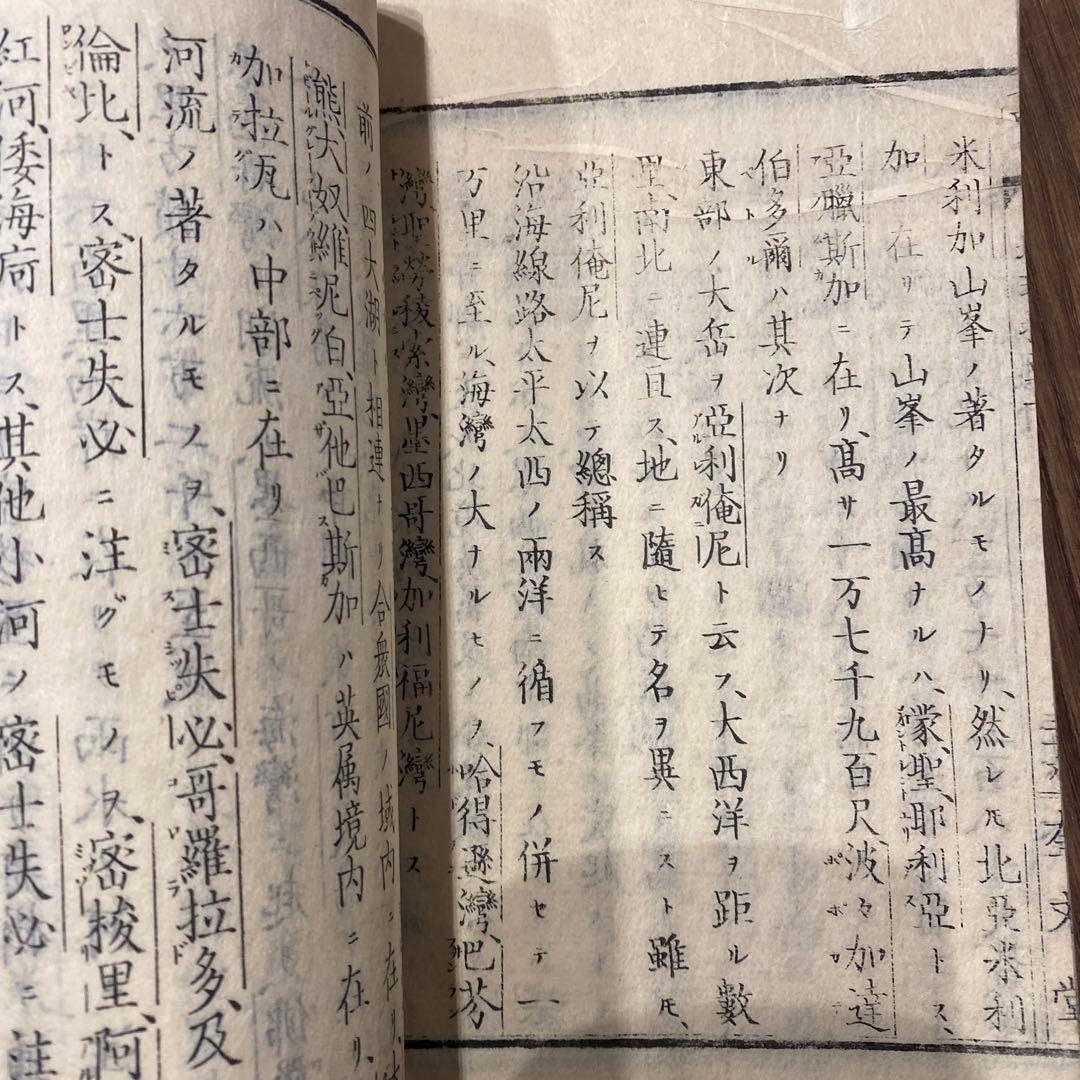 米利加山峯ノ著タルモノナリ、然レ𪜈北亞米利
加ニ在リテ山峯ノ最髙ナルハ、蒙、聖、耶利亞トス、
亞臘斯加ニ在リ、髙サ一万七千九百尺、波々加達
伯多爾ハ其次ナリ
東部ノ大岳ヲ亞利俺尼ト云フ、大西洋ヲ距ル數
里、南北ニ連亘ス、地ニ隨ヒテ名ヲ異ニスト雖𪜈、
亞利俺尼ヲ以テ總稱ス
沿海線路太平太西ノ兩洋ニ循フモノ併セテ一
万里ニ至ル、海灣ノ大ナルモノヲ、哈得遜灣、巴芬
灣聖勞稜索灣墨西哥灣加利福尼灣トス
前ノ四大湖ト相連ナリ合衆國ノ域内ニ在リ、
熊、大奴維泥伯、亞他巴斯加ハ英属境内ニ在リ、
加拉瓦ハ中部ニ在リ
河流ノ著タルモノヲ、密士失必、哥羅拉多、及
倫比、トス、密士失必ニ注グモノヲ、密梭里、阿
紅河、委海疴トス、其他小河ノ密士失必ニ注